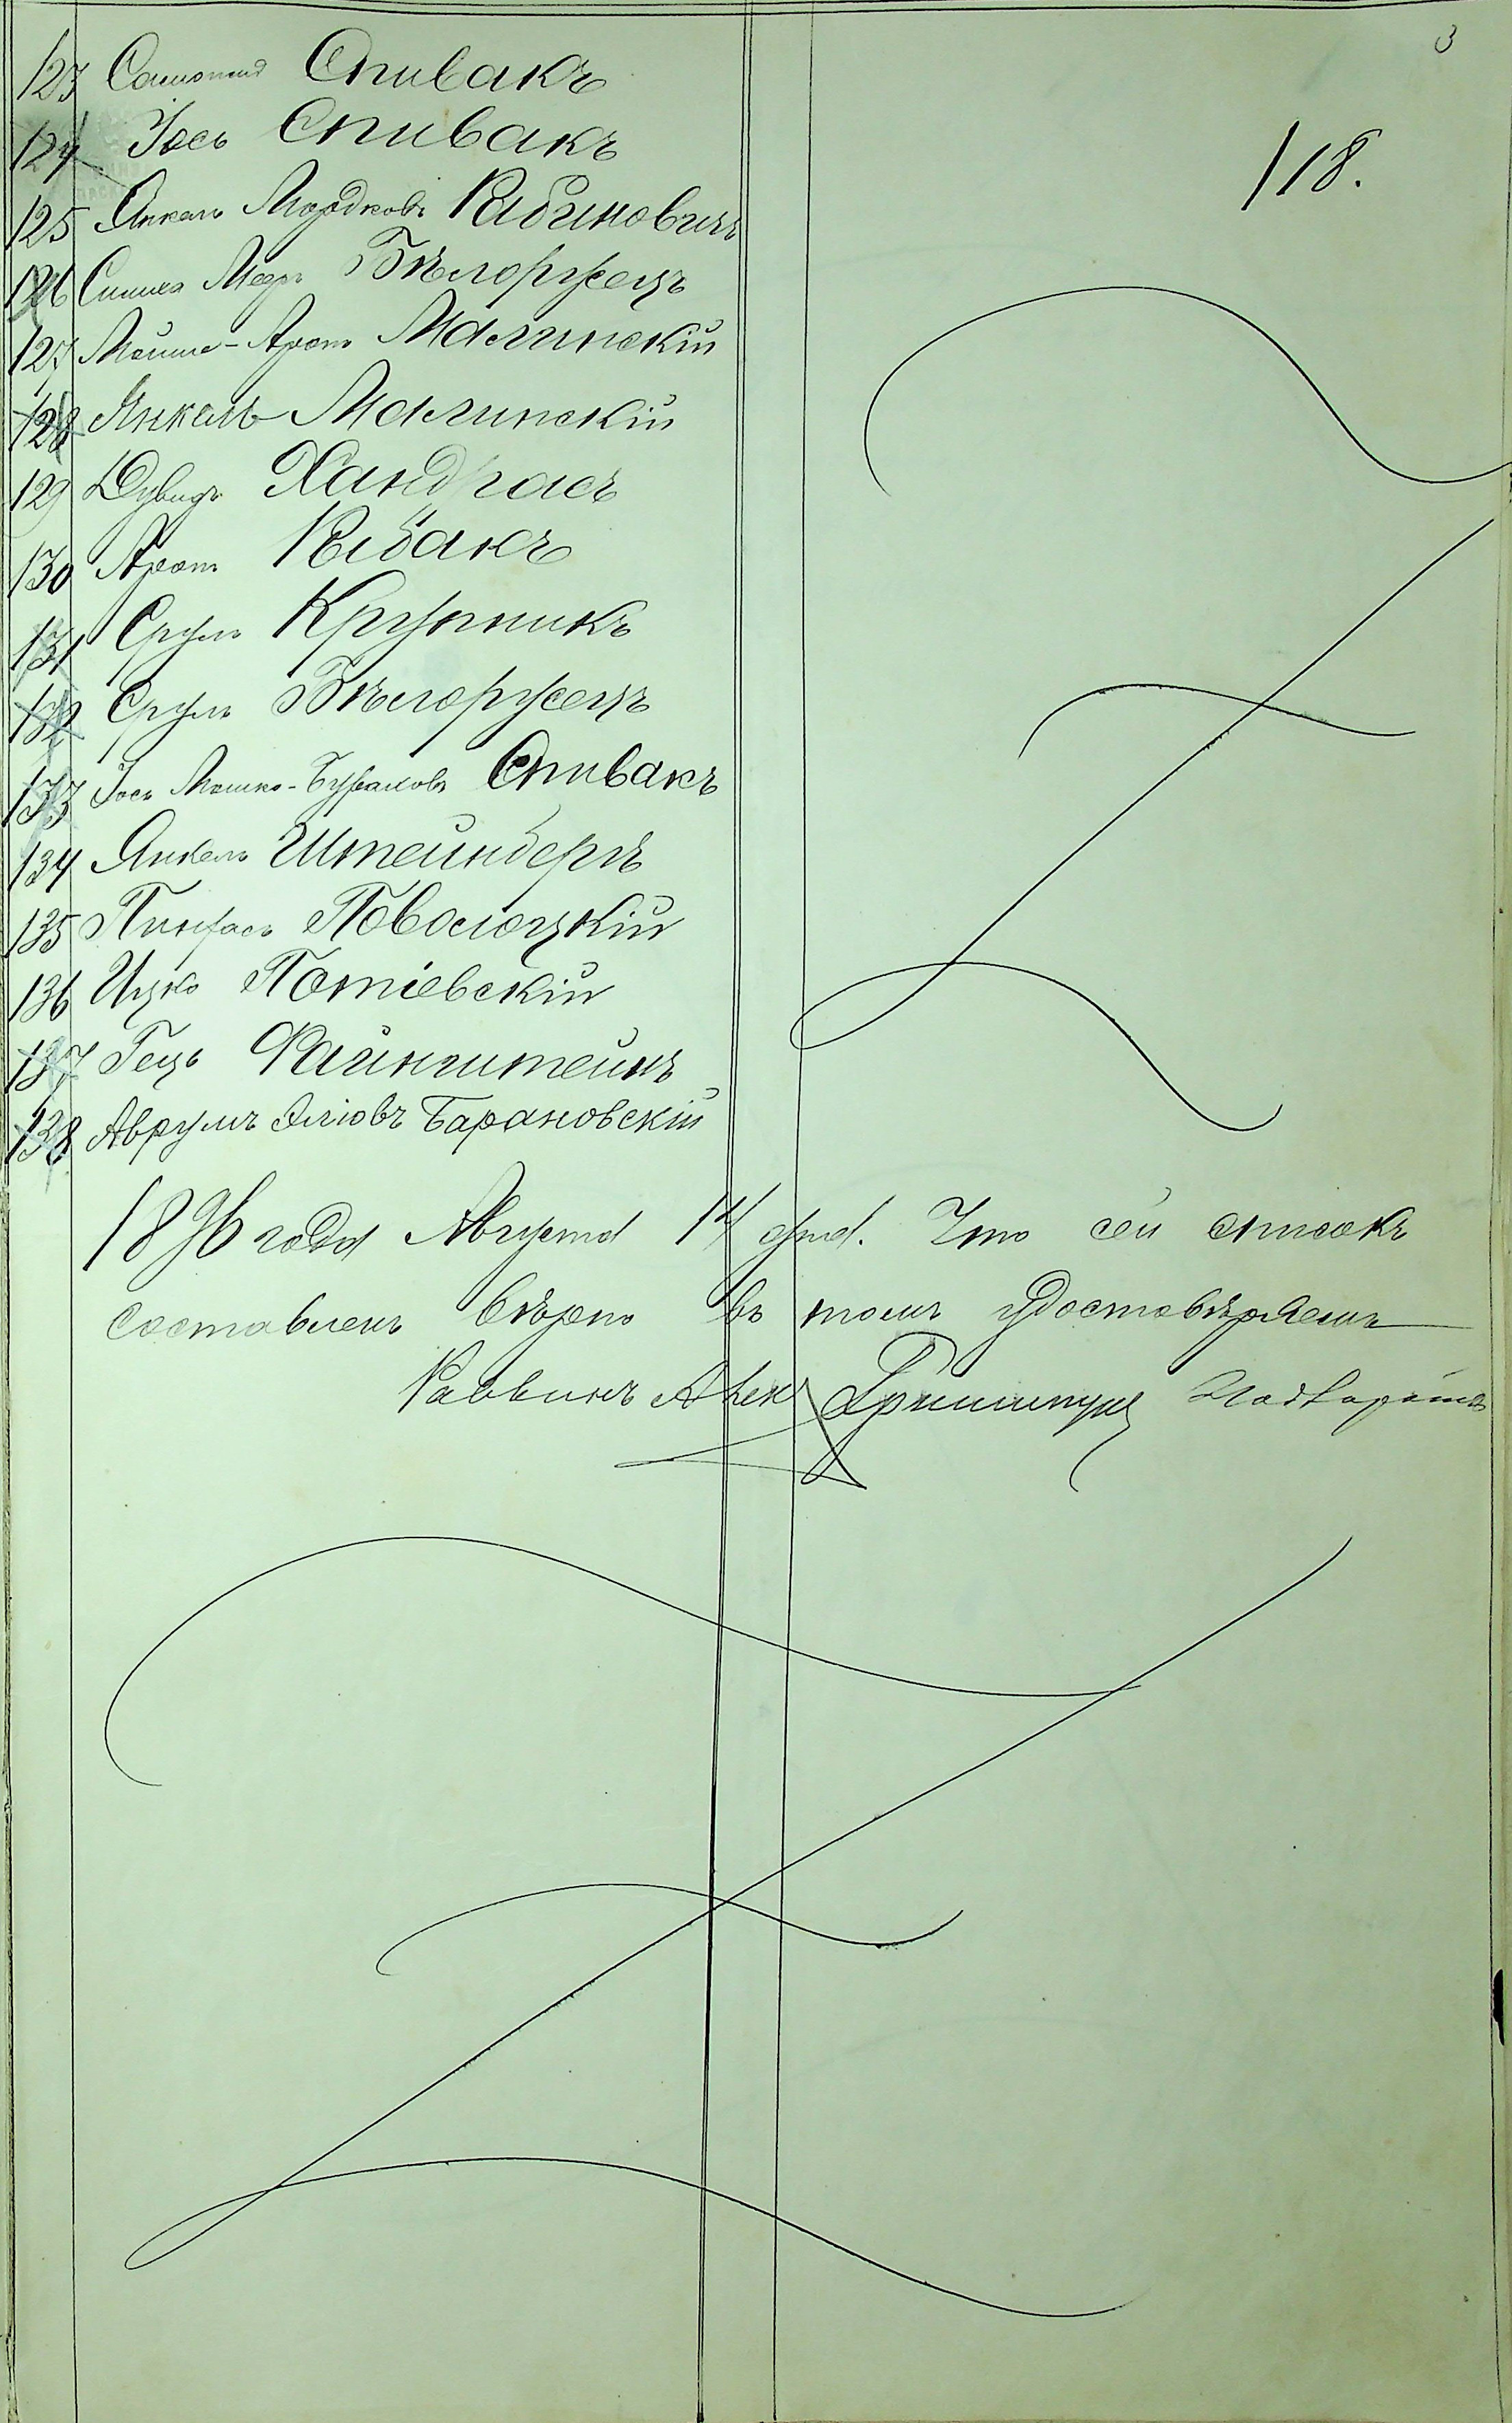 3
118.
123 Соломонъ Спивакъ
124 Іось Спивакъ
125 Янкель Мордковъ Рабиновичъ
126 Симха Мееръ Бѣлоружецъ
127 Мойше-Аронъ Малинскій
128 Янкель Малинскій
129 Дувидъ Хандрасъ
130 Аронъ Рыбакъ
131 Сруль Крупникъ
132 Сруль Бѣлоружецъ
133 Іось Мошко- Спивакъ
134 Янкель Штейнбергъ
135 Пинхасъ Поволоцкій
136 Ицко Потіевскій
137 Гецъ Файнштейнъ
138 Аврумъ Эліовъ Барановскій
1896 года Августа 14 дня. Что сей списокъ
составленъ вѣрно въ томъ удостовѣряемъ
Раввинъ